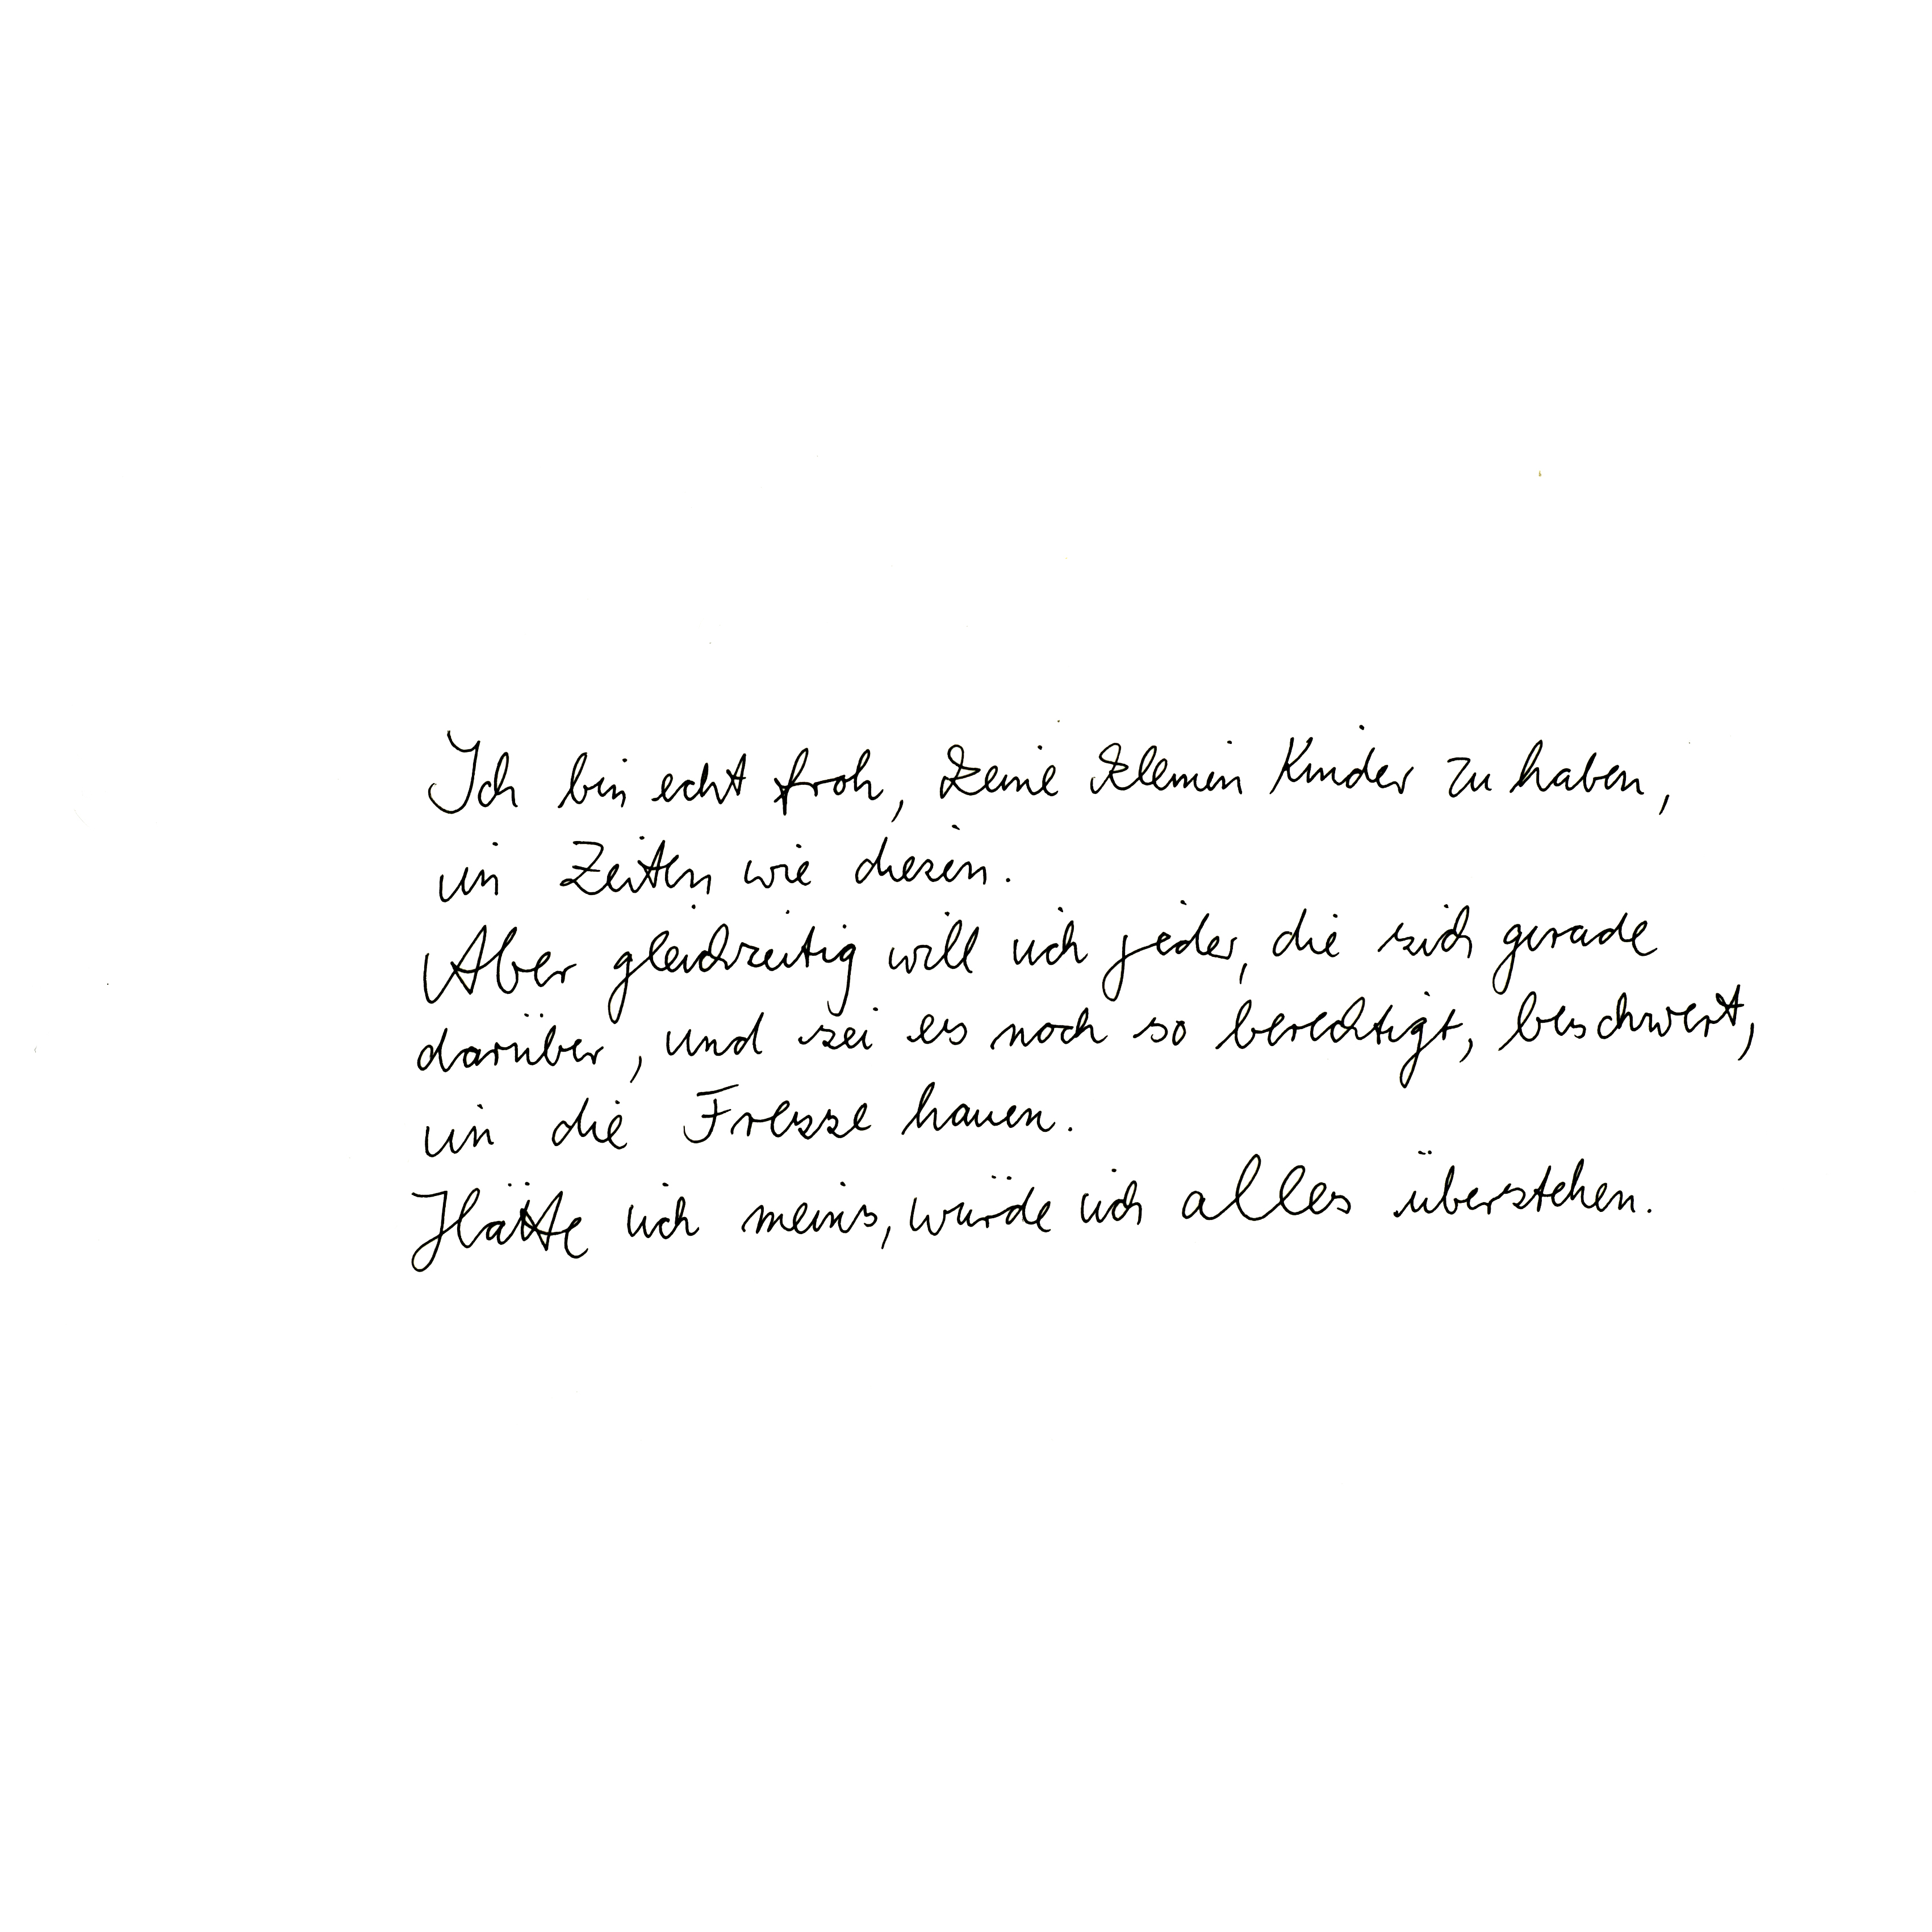 Ich bin echt froh, keine kleinen Kinder zu haben,
in Zeiten wie diesen.
Aber gleichzeitig will ich jeder, die sich gerade
darüber, und sei es noch so berechtigt, beschwert,
in die Fresse hauen.
Hätte ich meins, würde ich alles überstehen.